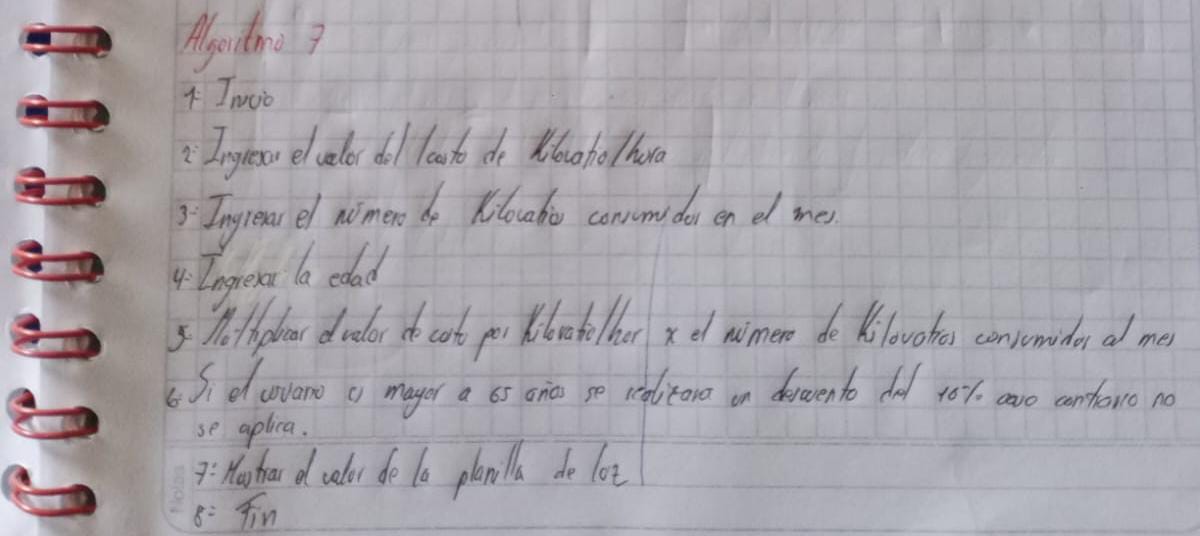 Algoritmo 7
1: Inicio
2: Ingresar el valor del costo de Kilovatio/hora
3: Ingresar el número de Kilovatios consumidos en el mes.
4: Ingresar la edad
5: Multiplicar el valor de costo por Kilovatio/hor x el número de Kilovatios consumidos al mes
6: Si el usuario es mayor a 65 años se realizara un descuento del 10% caso contrario no
se aplica.
7: Mostrar el valor de la planilla de luz
8: Fin
Notas